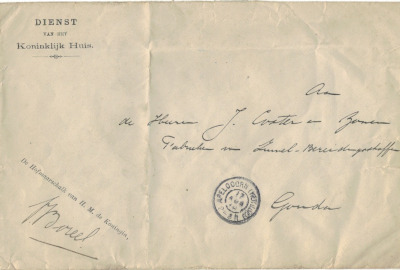 DIENST
VAN HET
Koninklijk Huis.
Aan
de Heeren J. Coster en Zonen
Fabrieken van Zuivel-Bereidingsstoffen
Gouda
De Hofmaarschalk van H. M. de Koningin,
APELDOORN